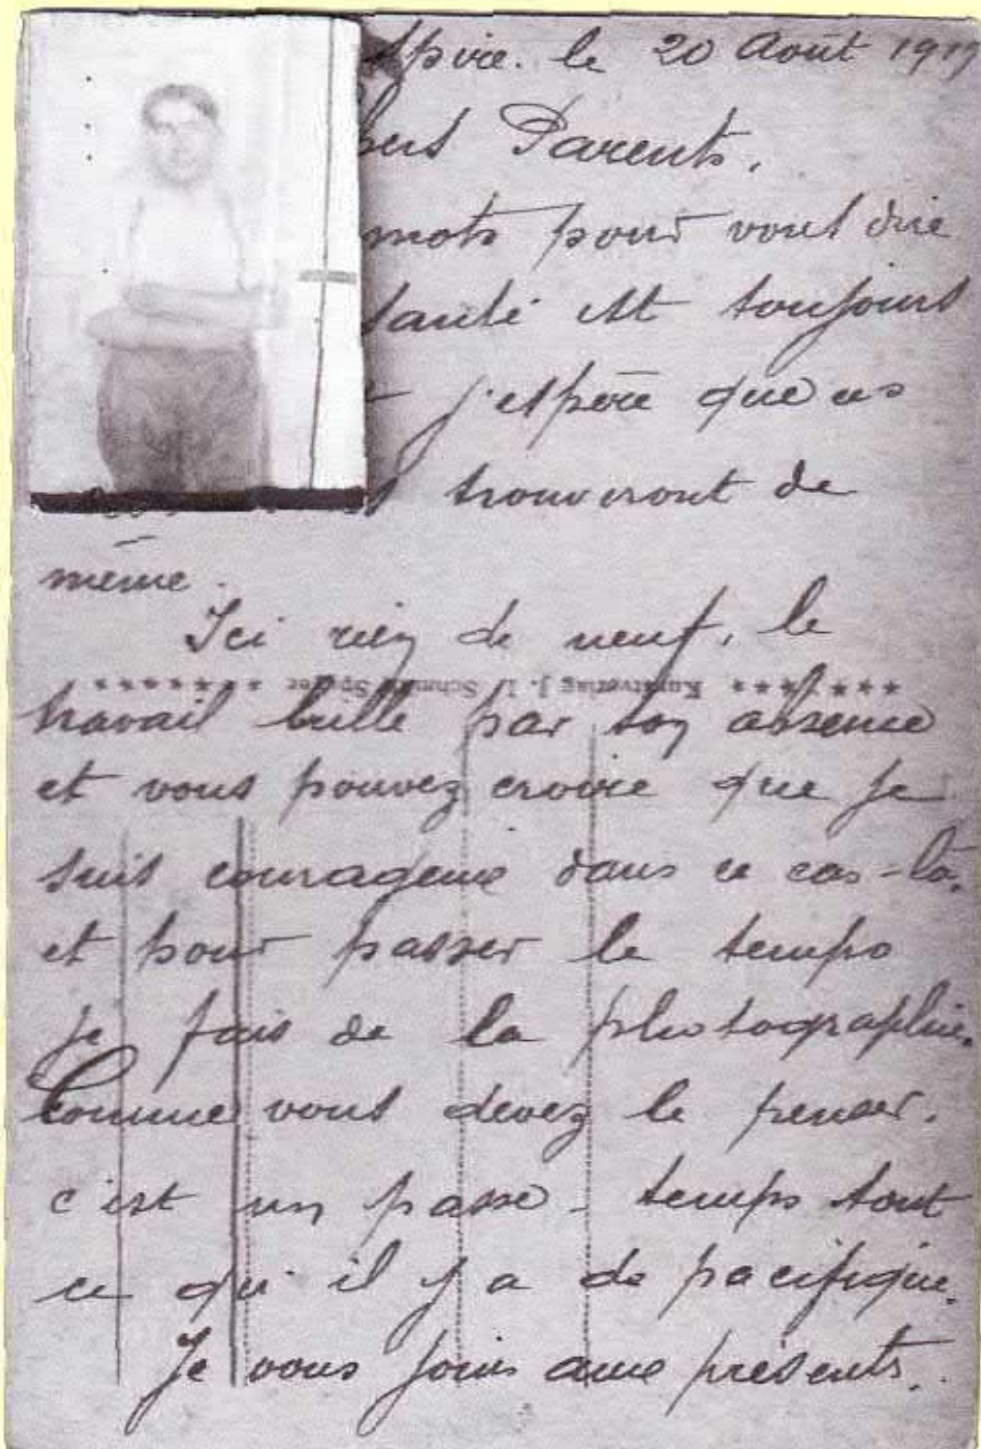 Spire. le 20 Août 1919
hers Parents,
mots pour vous dire
santé est toujours
j'espère que ces
trouveront de
même.
Ici rien de neuf, le
Kunstverlag J.
travail brille par son absence
et vous pouvez croire que je
suis courageux dans ce cas-là.
et pour passer le temps
je fais de la photographie.
Comme vous devez le penser,
c'est un passe-temps tout
ce qu'il y a de pacifique.
Je vous joins aux présents.